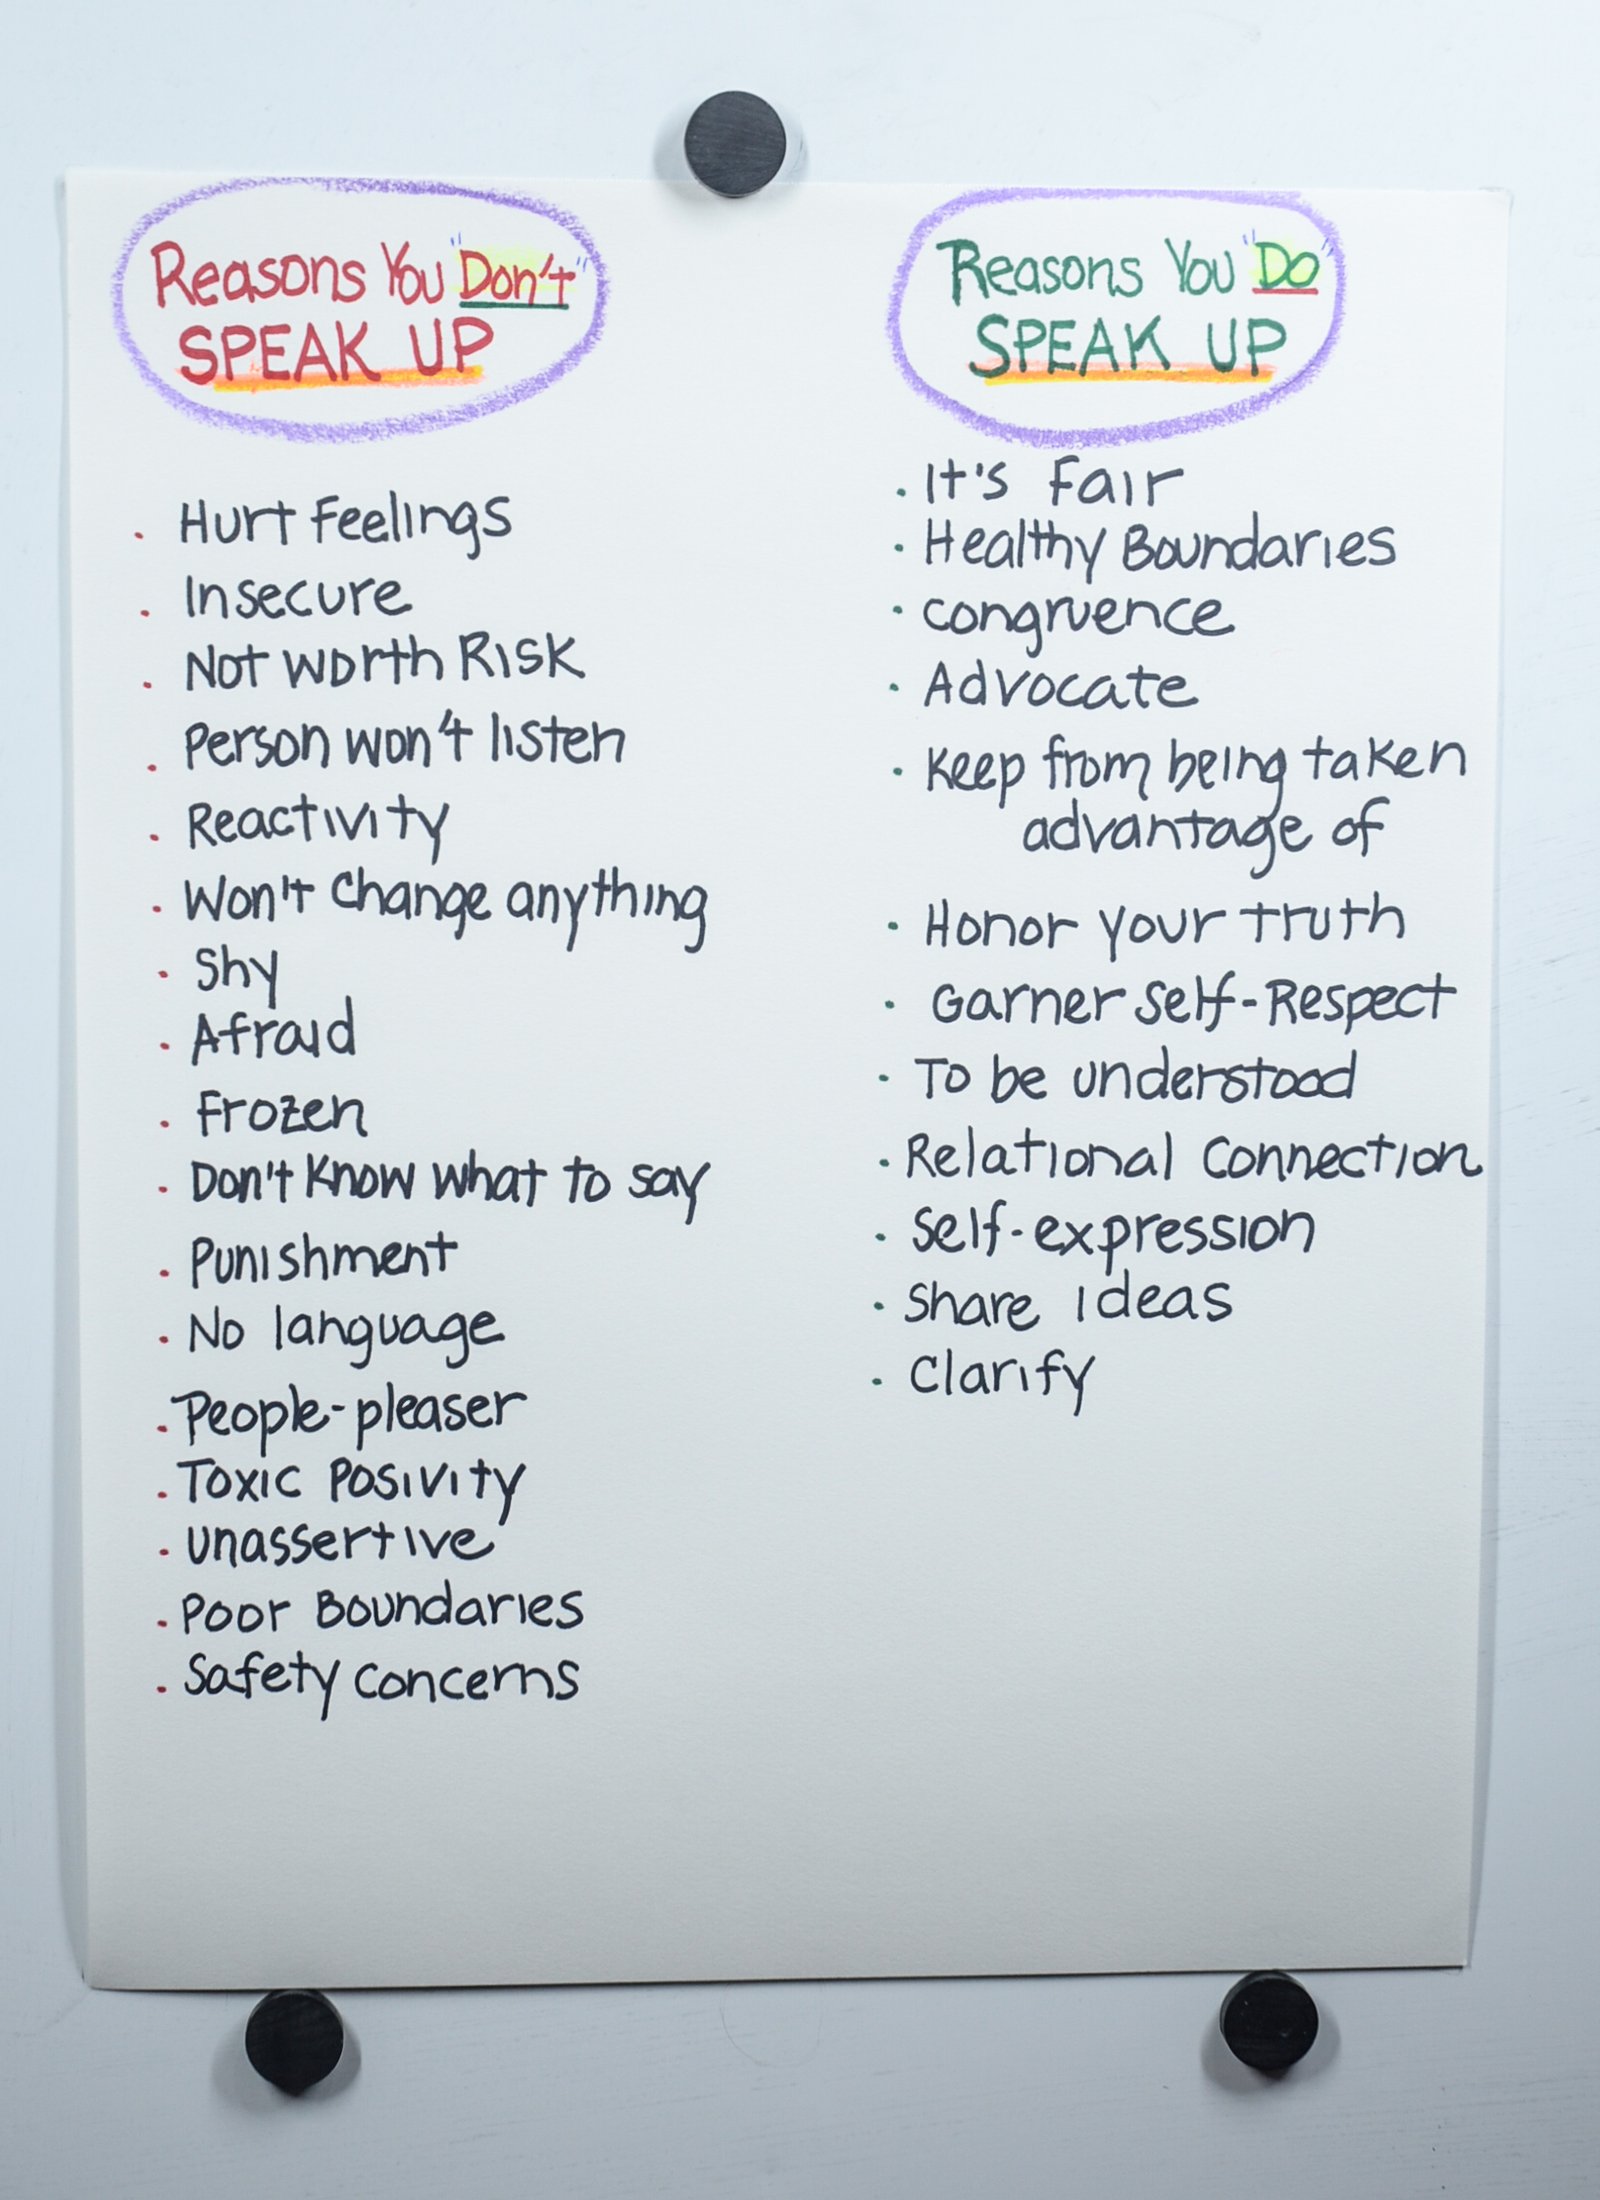 Reasons You "Don't"
SPEAK UP
. Hurt Feelings
. Insecure
. Not Worth Risk
. Person won't listen
. Reactivity
. Won't Change anything
. Shy
. Afraid
. Frozen
. Don't Know what to say
. Punishment
. No language
. People-pleaser
. Toxic Posivity
. Unassertive
. Poor Boundaries
. Safety concerns
Reasons You "Do"
SPEAK UP
. It's Fair
. Healthy Boundaries
. congruence
. Advocate
. Keep from being taken
advantage of
. Honor your truth
. Garner Self-Respect
. To be understood
. Relational Connection
. Self-expression
. Share ideas
. Clarify